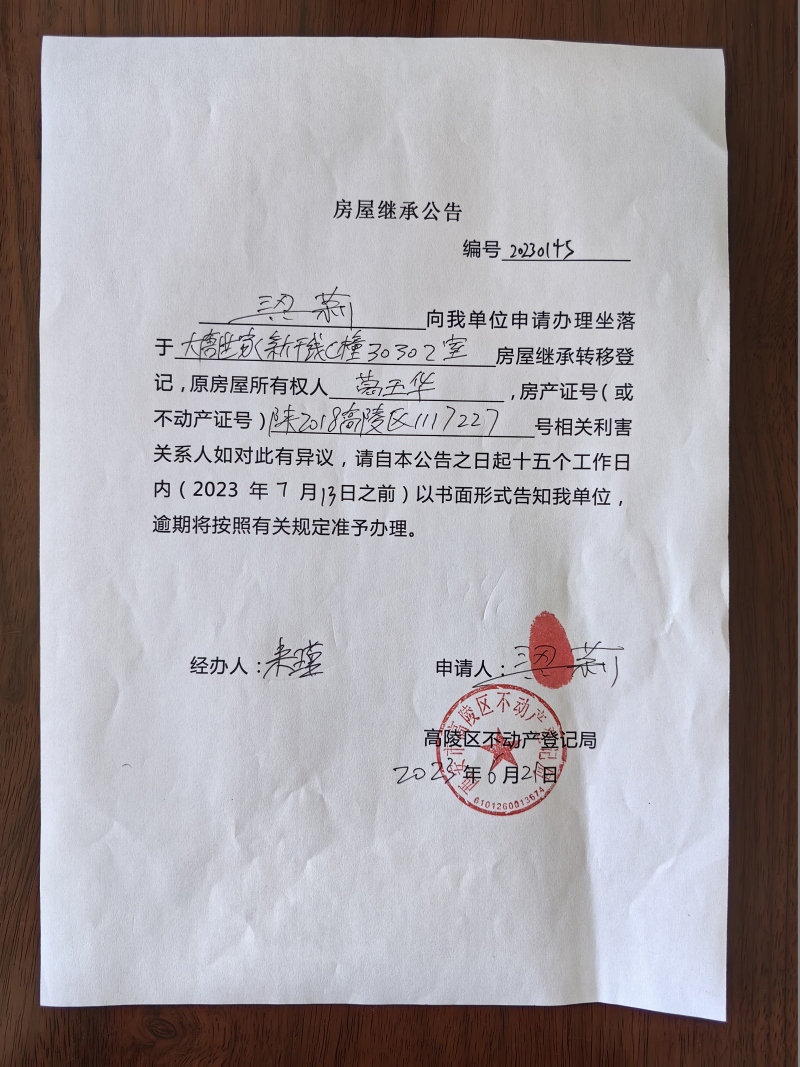 房屋继承公告
编号 20230145
梁莉 向我单位申请办理坐落
于 大唐世家新干线C幢30302室 房屋继承转移登
记，原房屋所有权人 葛玉华 ，房产证号（或
不动产证号）陕2018高陵区1117227 号相关利害
关系人如对此有异议，请自本公告之日起十五个工作日
内（2023 年 7 月 13日之前）以书面形式告知我单位，
逾期将按照有关规定准予办理。
经办人：来瑾 申请人：梁莉
西安市高陵区不动产登记局
高陵区不动产登记局
2023年6月21日
6101260013674